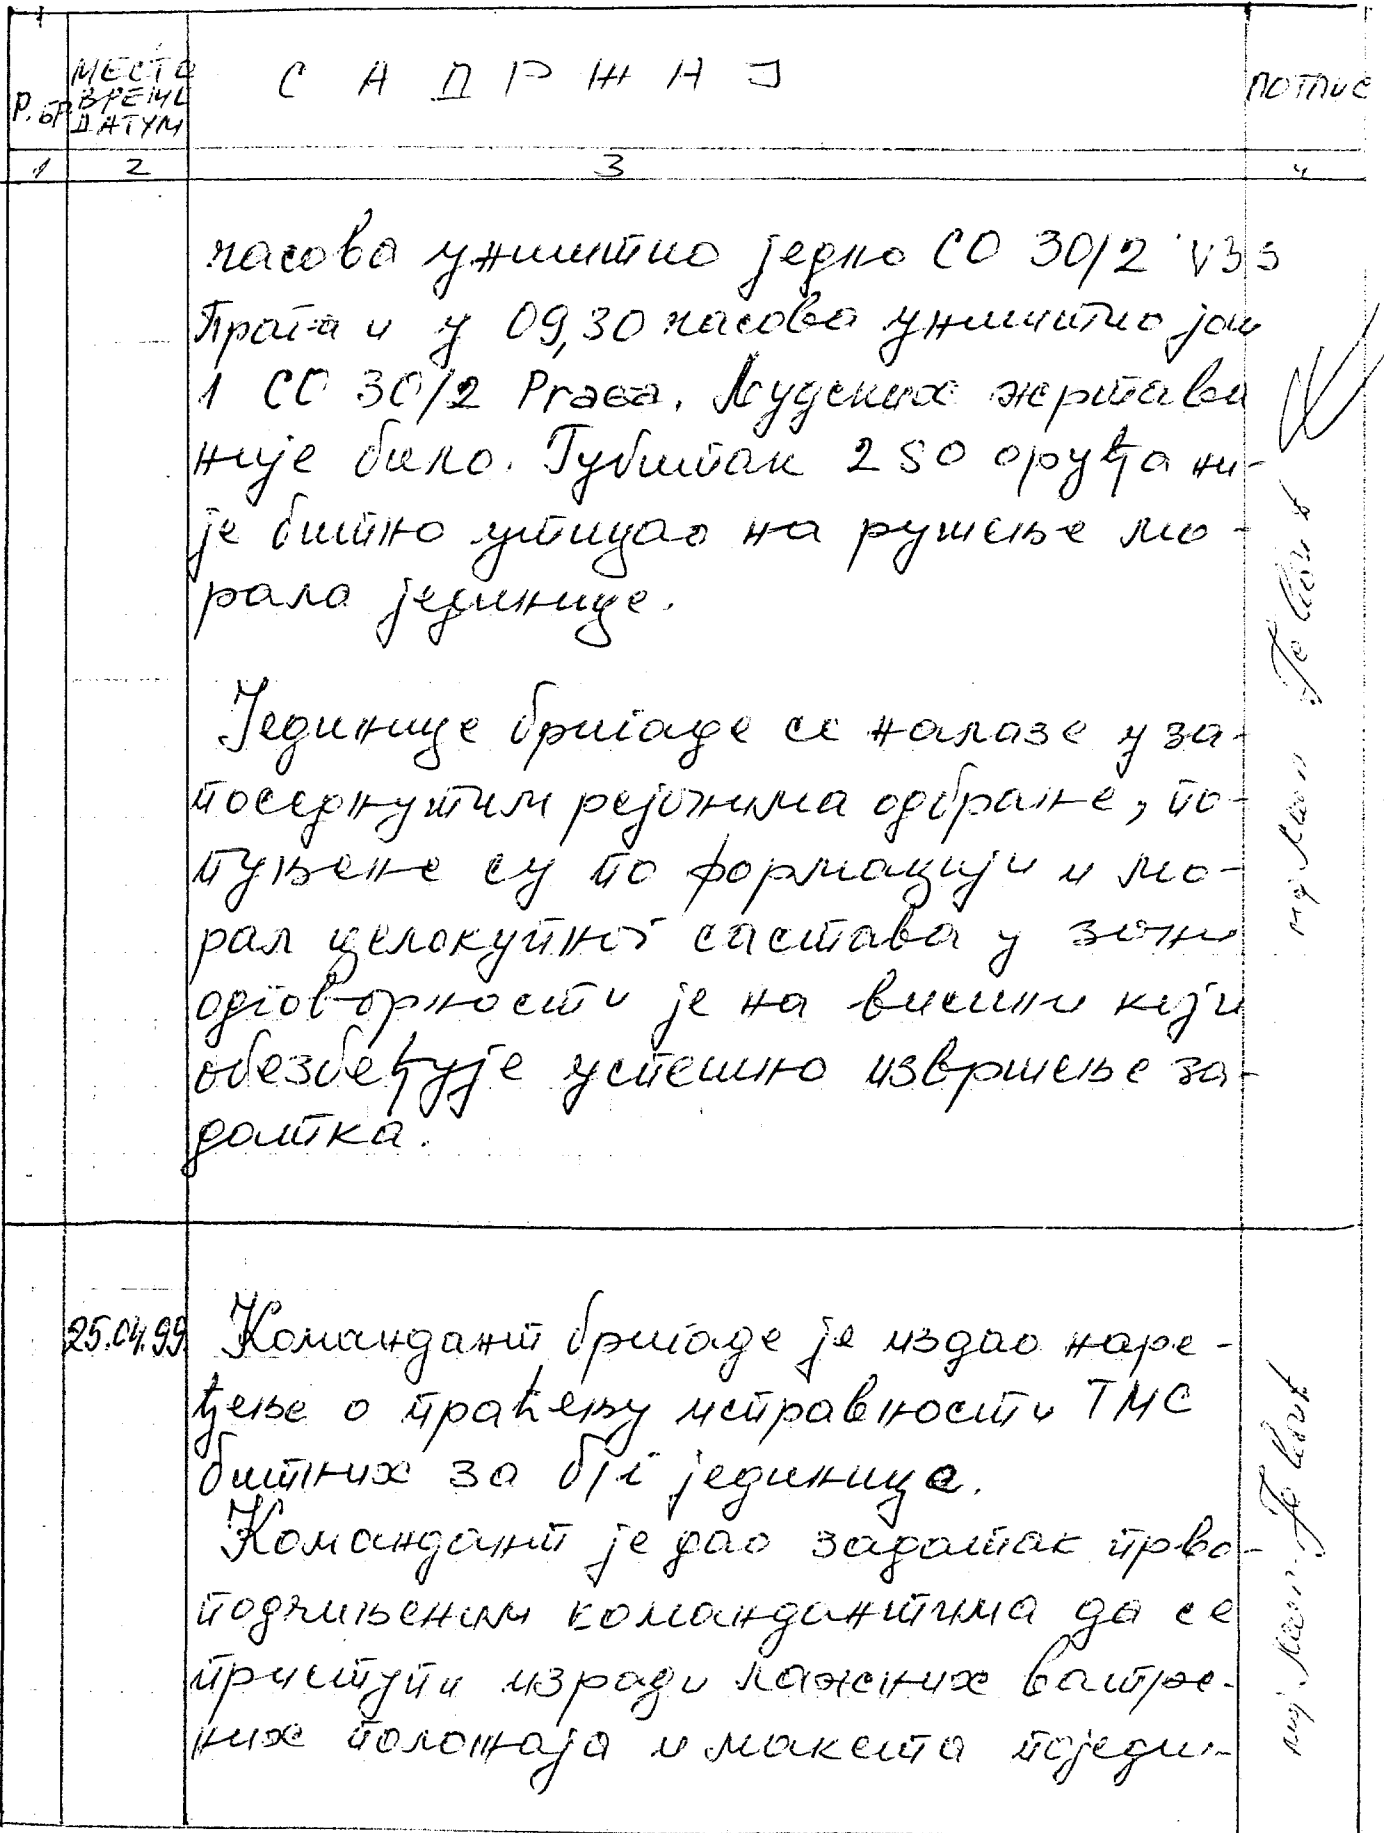 Р. БР.
МЕСТО
ВРЕМЕ
ДАТУМ
САДРЖАЈ
ПОТПИС
1 2 3 4
часова уништио једно СО 30/2 V3S
Прага и у 09,30 часова уништио још
1 СО 30/2 Praga. Људских жртава
није било. Губитак 2 SO оруђа ни-
је битно утицао на рушење мо-
рала јединице.
Јединице бригаде се налазе у за-
поседнутим рејонима одбране, по-
пуњене су по формацији и мо-
рал целокупног састава у зони
одговорности је на висини који
обезбеђује успешно извршење за-
датка.
25.04.99.
Командант бригаде је издао наре-
ђење о праћењу исправности ТМС
битних за б/г јединица.
Командант је дао задатак прво-
подчињеним командантима да се
приступи изради лажних ватре-
них положаја и макета поједи-